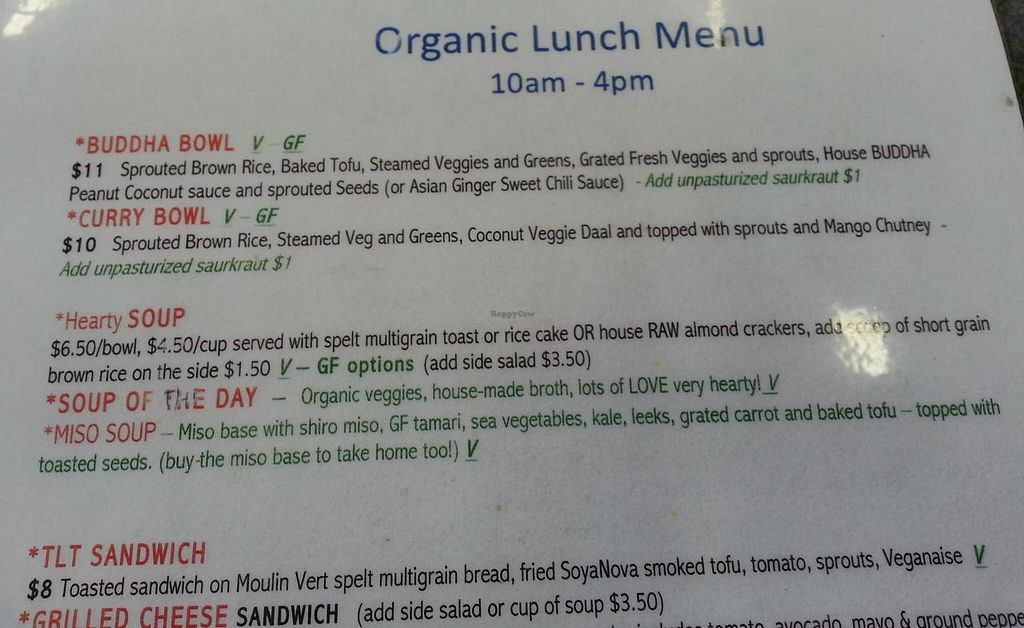 Organic Lunch Menu
10am - 4pm
*BUDDHA BOWL V - GF
$11 Sprouted Brown Rice, Baked Tofu, Steamed Veggies and Greens, Grated Fresh Veggies and sprouts, House BUDDHA
Peanut Coconut sauce and sprouted Seeds (or Asian Ginger Sweet Chili Sauce) - Add unpasturized saurkraut $1
*CURRY BOWL V - GF
$10 Sprouted Brown Rice, Steamed Veg and Greens, Coconut Veggie Daal and topped with sprouts and Mango Chutney -
Add unpasturized saurkraut $1
*Hearty SOUP
HappyCow
$6.50/bowl, $4.50/cup served with spelt multigrain toast or rice cake OR house RAW almond crackers, add scoop of short grain
brown rice on the side $1.50 V – GF options (add side salad $3.50)
*SOUP OF THE DAY – Organic veggies, house-made broth, lots of LOVE very hearty! V
*MISO SOUP – Miso base with shiro miso, GF tamari, sea vegetables, kale, leeks, grated carrot and baked tofu – topped with
toasted seeds. (buy the miso base to take home too!) V
*TLT SANDWICH
$8 Toasted sandwich on Moulin Vert spelt multigrain bread, fried SoyaNova smoked tofu, tomato, sprouts, Veganaise V
*GRILLED CHEESE SANDWICH (add side salad or cup of soup $3.50)
tomato, avocado, mayo & ground